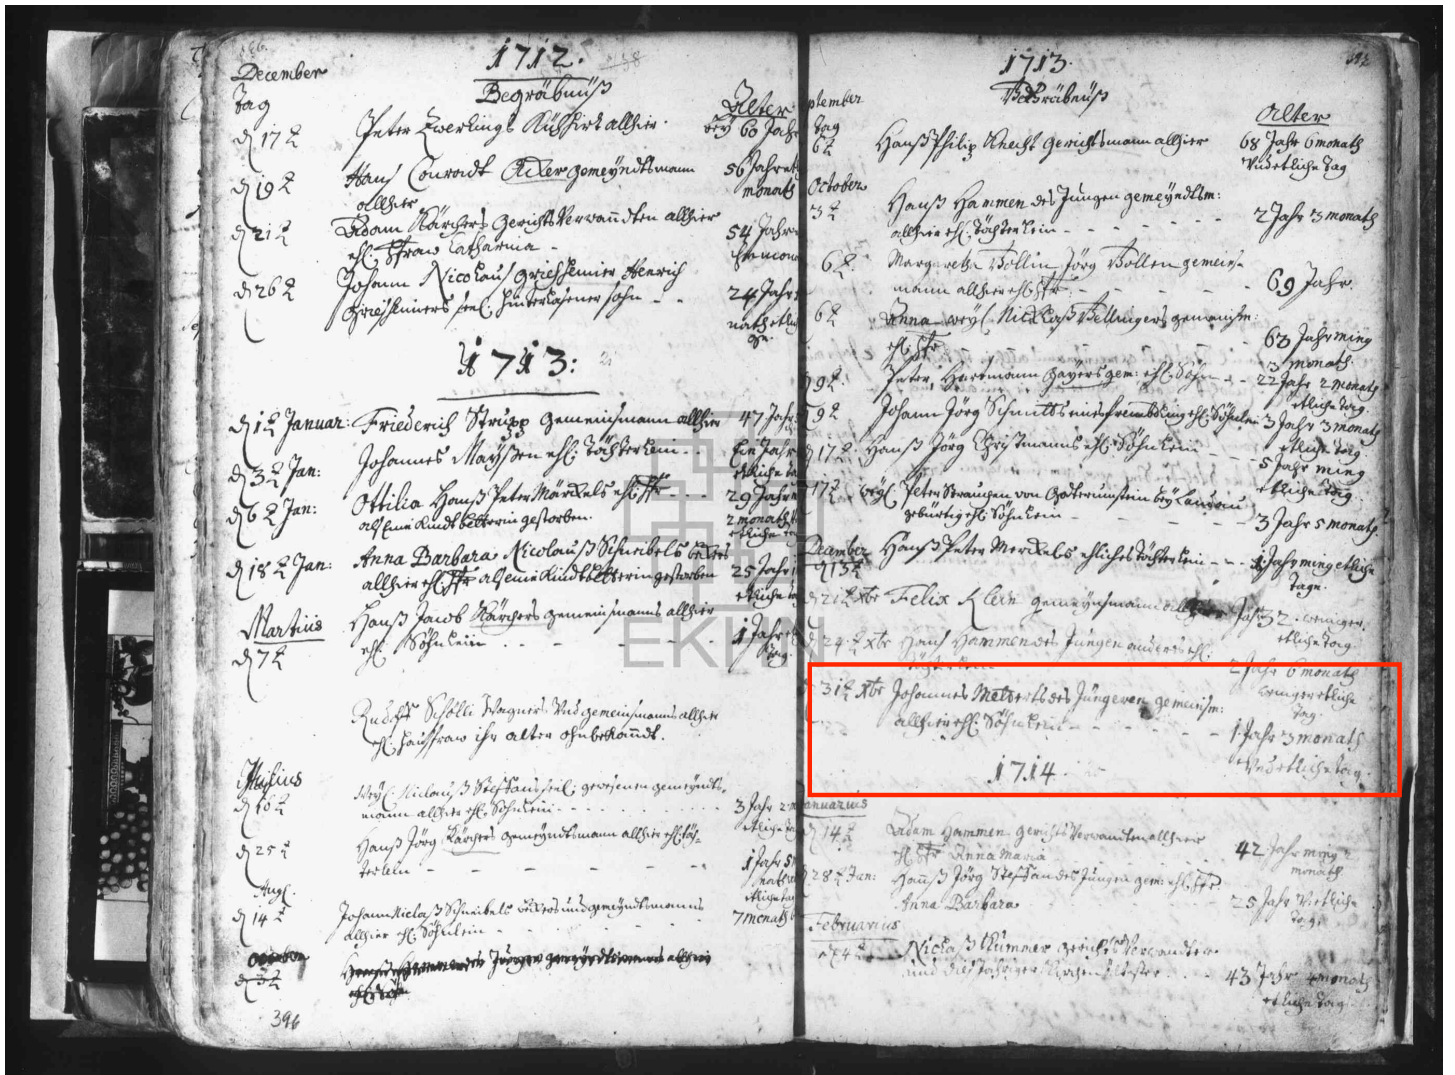 December
1712.
Begräbnüß
Tag
Alter
d 17t
Peter Zwerlings Kühhirt allhier.
bey 60 Jahr
d 19t
Hans Conradt Adler gemeyndtsmann
allhier
56 Jahr
monath
d 21t
Adam Kärchers Gerichts Verwanndten allhier
ehl. fraw Catharina -
54 Jahr
d 26t
Johann Nicolaus Griesheimer Henrich
Griesheimers seel. hinterlasener sohn
24 Jahr
1713:
d 1t Januar:
Friederich Strupp gemeinsmann allhier
47 Jahr
d 3t Jan:
Johannes Mayßen ehl. Töchterlein
etliche
d 6t Jan:
Ottilia Hanß Peter Märckels ehl. fr
als eine Kindtbetterin gestorben.
29 Jahr
2 monath
etliche
d 18t Jan:
Anna Barbara Nicolauß Schneibels
allhier ehl. fr als eine Kindtbetterin gestorben
25 Jahr
etliche
Martius
d 7t
Hanß Jacob Kärchers gemeinsmanns allhier
ehl. Söhnlein
1 Jahr
tag.
Wagners Und gemeinsmanns allhier
ehl. haußfraw ihr alter ohnbekanndt.
Julius
d 16t
Weyl. Niclauß Steffans seel. gewesenen gemeyndts-
mann allhier ehl. Söhnlein
3 Jahr 2
etliche
d 25t
Hanß Jörg Kärchers gemeyndtsmann allhier ehl. töch-
terlein
1 Jahr
etliche
Aug.
d 14t
Johann Niclaß Schneibels beckers und gemeyndtsmanns
allhier ehl. Söhnlein
7 monath
d 3t
396
1713.
Begräbnüß
ptember
Tag
Alter
6t
Hanß Philip Knecht Gerichtsmann allhier
68 Jahr 6 monath
Und etliche tag
October
3t
Hanß Hammen des Jungen gemeyndtsm:
allhier ehl. Töchterlein
2 Jahr 3 monath
6t
Margaretha Bollin Jörg Bollen gemeins-
mann allhier ehl. fr.
69 Jahr.
6t
Anna weyl. Nicklaß Bellingers gemeinsm:
ehl. fr
63 Jahr ming
3 monath.
9t
Peter Hartmann Gayers gem: ehl. Sohn
22 Jahr 2 monath
etliche tag.
9t
Johann Jörg Schmitts eines frembdling ehl. Söhnlein
3 Jahr 3 monath
etliche tag
d 17t
Hanß Jörg Christmanns ehl. Söhnlein
5 Jahr ming
etliche tag
17t
Peter Strauchen von Godramstein bey Landau
gebürtig ehl. Söhnlein
3 Jahr 5 monath.
December
d 13t
Hanß Peter Merckels ehliches töchterlein
1 Jahr ming etliche
tage.
d 21t Xbr
Felix Klein gemeynsmann allhier
Jahr 32. weniger
etliche tag
d 24t Xbr
Hans Hammen des Jungen anders ehl.
Töchterlein
2 Jahr 6 monath
weniger etliche
tag.
31t Xbr
Johannes Metterts des Jüngeren gemeinsm:
allhier ehl. Söhnlein
1 Jahr 3 monath
Und etliche tag
1714.
anuarius
d 14t
Adam Hammen gerichts Verwandten allhier
ehl. fr Anna Maria
42 Jahr ming 2
monath
28t Jan:
Hanß Jörg Steffan des Jungen gem: ehl. fr.
Anna Barbara
25 Jahr Und etliche
tag.
Februarius
d 4t
Nicklaß Kummer gerichts Verwandter
und diesjähriger Kirchen Eltester
43 Jahr 4 monath
etliche tag
EKHN